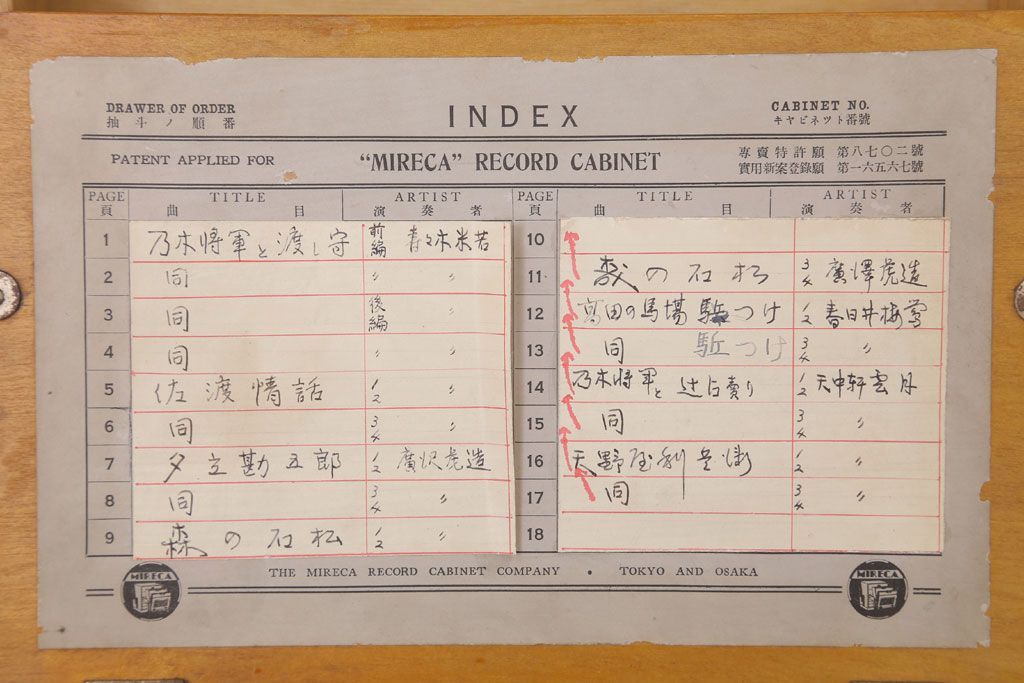 DRAWER OF ORDER
抽斗ノ順番
INDEX
CABINET NO.
キヤビネツト番號
PATENT APPLIED FOR
"MIRECA" RECORD CABINET
專賣特許願 第八七〇二號
實用新案登錄願 第一六五六七號
PAGE TITLE ARTIST PAGE TITLE ARTIST
頁 曲目 演奏者 頁 曲目 演奏者
1 乃木將軍と渡し守 前編 寿々木米若
2 同 〃 〃
3 同 後編 〃
4 同 〃 〃
5 佐渡情話 1/2 〃
6 同 3/4 〃
7 夕立勘五郎 1/2 廣沢虎造
8 同 3/4 〃
9 森の石松 1/2 〃
10
11 森の石松 3/4 廣澤虎造
12 高田の馬場 駈つけ 1/2 春日井梅鶯
13 同 駈つけ 3/4 〃
14 乃木將軍と辻占賣り 1/2 天中軒雲月
15 同 3/4 〃
16 天野屋利兵衛 1/2 〃
17 同 3/4 〃
18
THE MIRECA RECORD CABINET COMPANY • TOKYO AND OSAKA
MIRECA
MIRECA